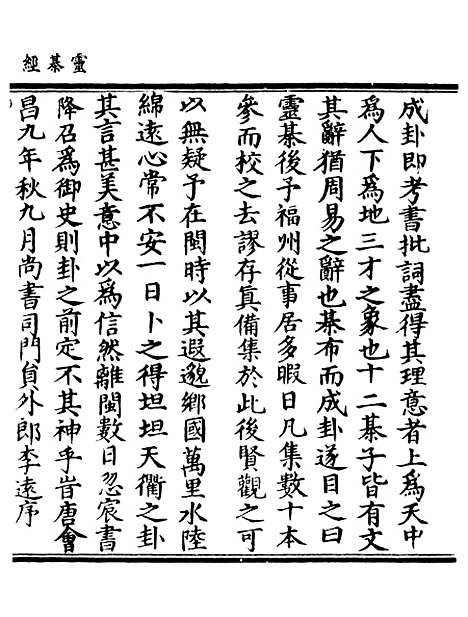 靈棊經
成卦即考書批詞盡得其理意者上爲天中
爲人下爲地三才之象也十二棊子皆有文
其辭猶周易之辭也棊布而成卦遂目之曰
靈棊後予福州從事居多暇日凡集數十本
參而校之去謬存眞備集於此後賢觀之可
以無疑予在閩時以其遐邈鄉國萬里水陸
綿遠心常不安一日卜之得坦坦天衢之卦
其言甚美意中以爲信然離閩數日忽宸書
降召爲御史則卦之前定不其神乎旹唐會
昌九年秋九月尚書司門貟外郎李遠序